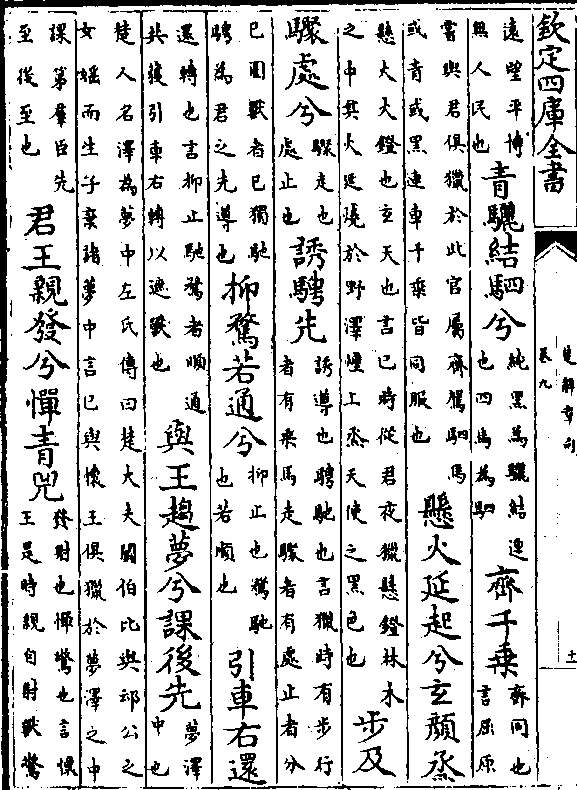 欽定四庫全書
楚辭章句
卷九
十一
遠望平博
無人民也
青驪結駟兮
純黑為驪結連
也四馬為駟
齊千乗
齊同也
言屈原
嘗與君俱獵於此官屬齊駕駟馬
或青或黑連車千乗皆同服也
懸火延起兮玄顔烝
懸火火鐙也玄天也言已時從君夜獵懸鐙林木
之中其火延燒於野澤煙上烝天使之黑色也
步及
驟處兮
驟走也
處止也
誘騁先
誘導也騁馳也言獵時有步行
者有乗馬走驟者有處止者分
已圍獸者已獨馳
騁為君之先導也
抑騖若通兮
抑止也騖馳
也若順也
引車右還
還轉也言抑止馳騖者順通
共獲引車右轉以遮獸也
與王趨夢兮課後先
夢澤
中也
楚人名澤為夢中左氏傳曰楚大夫鬭伯比與邧公之
女媱而生子棄諸夢中言已與懷王俱獵於夢澤之中
課第羣臣先
至後至也
君王親發兮憚青兕
發射也憚驚也言懷
王是時親自射獸驚